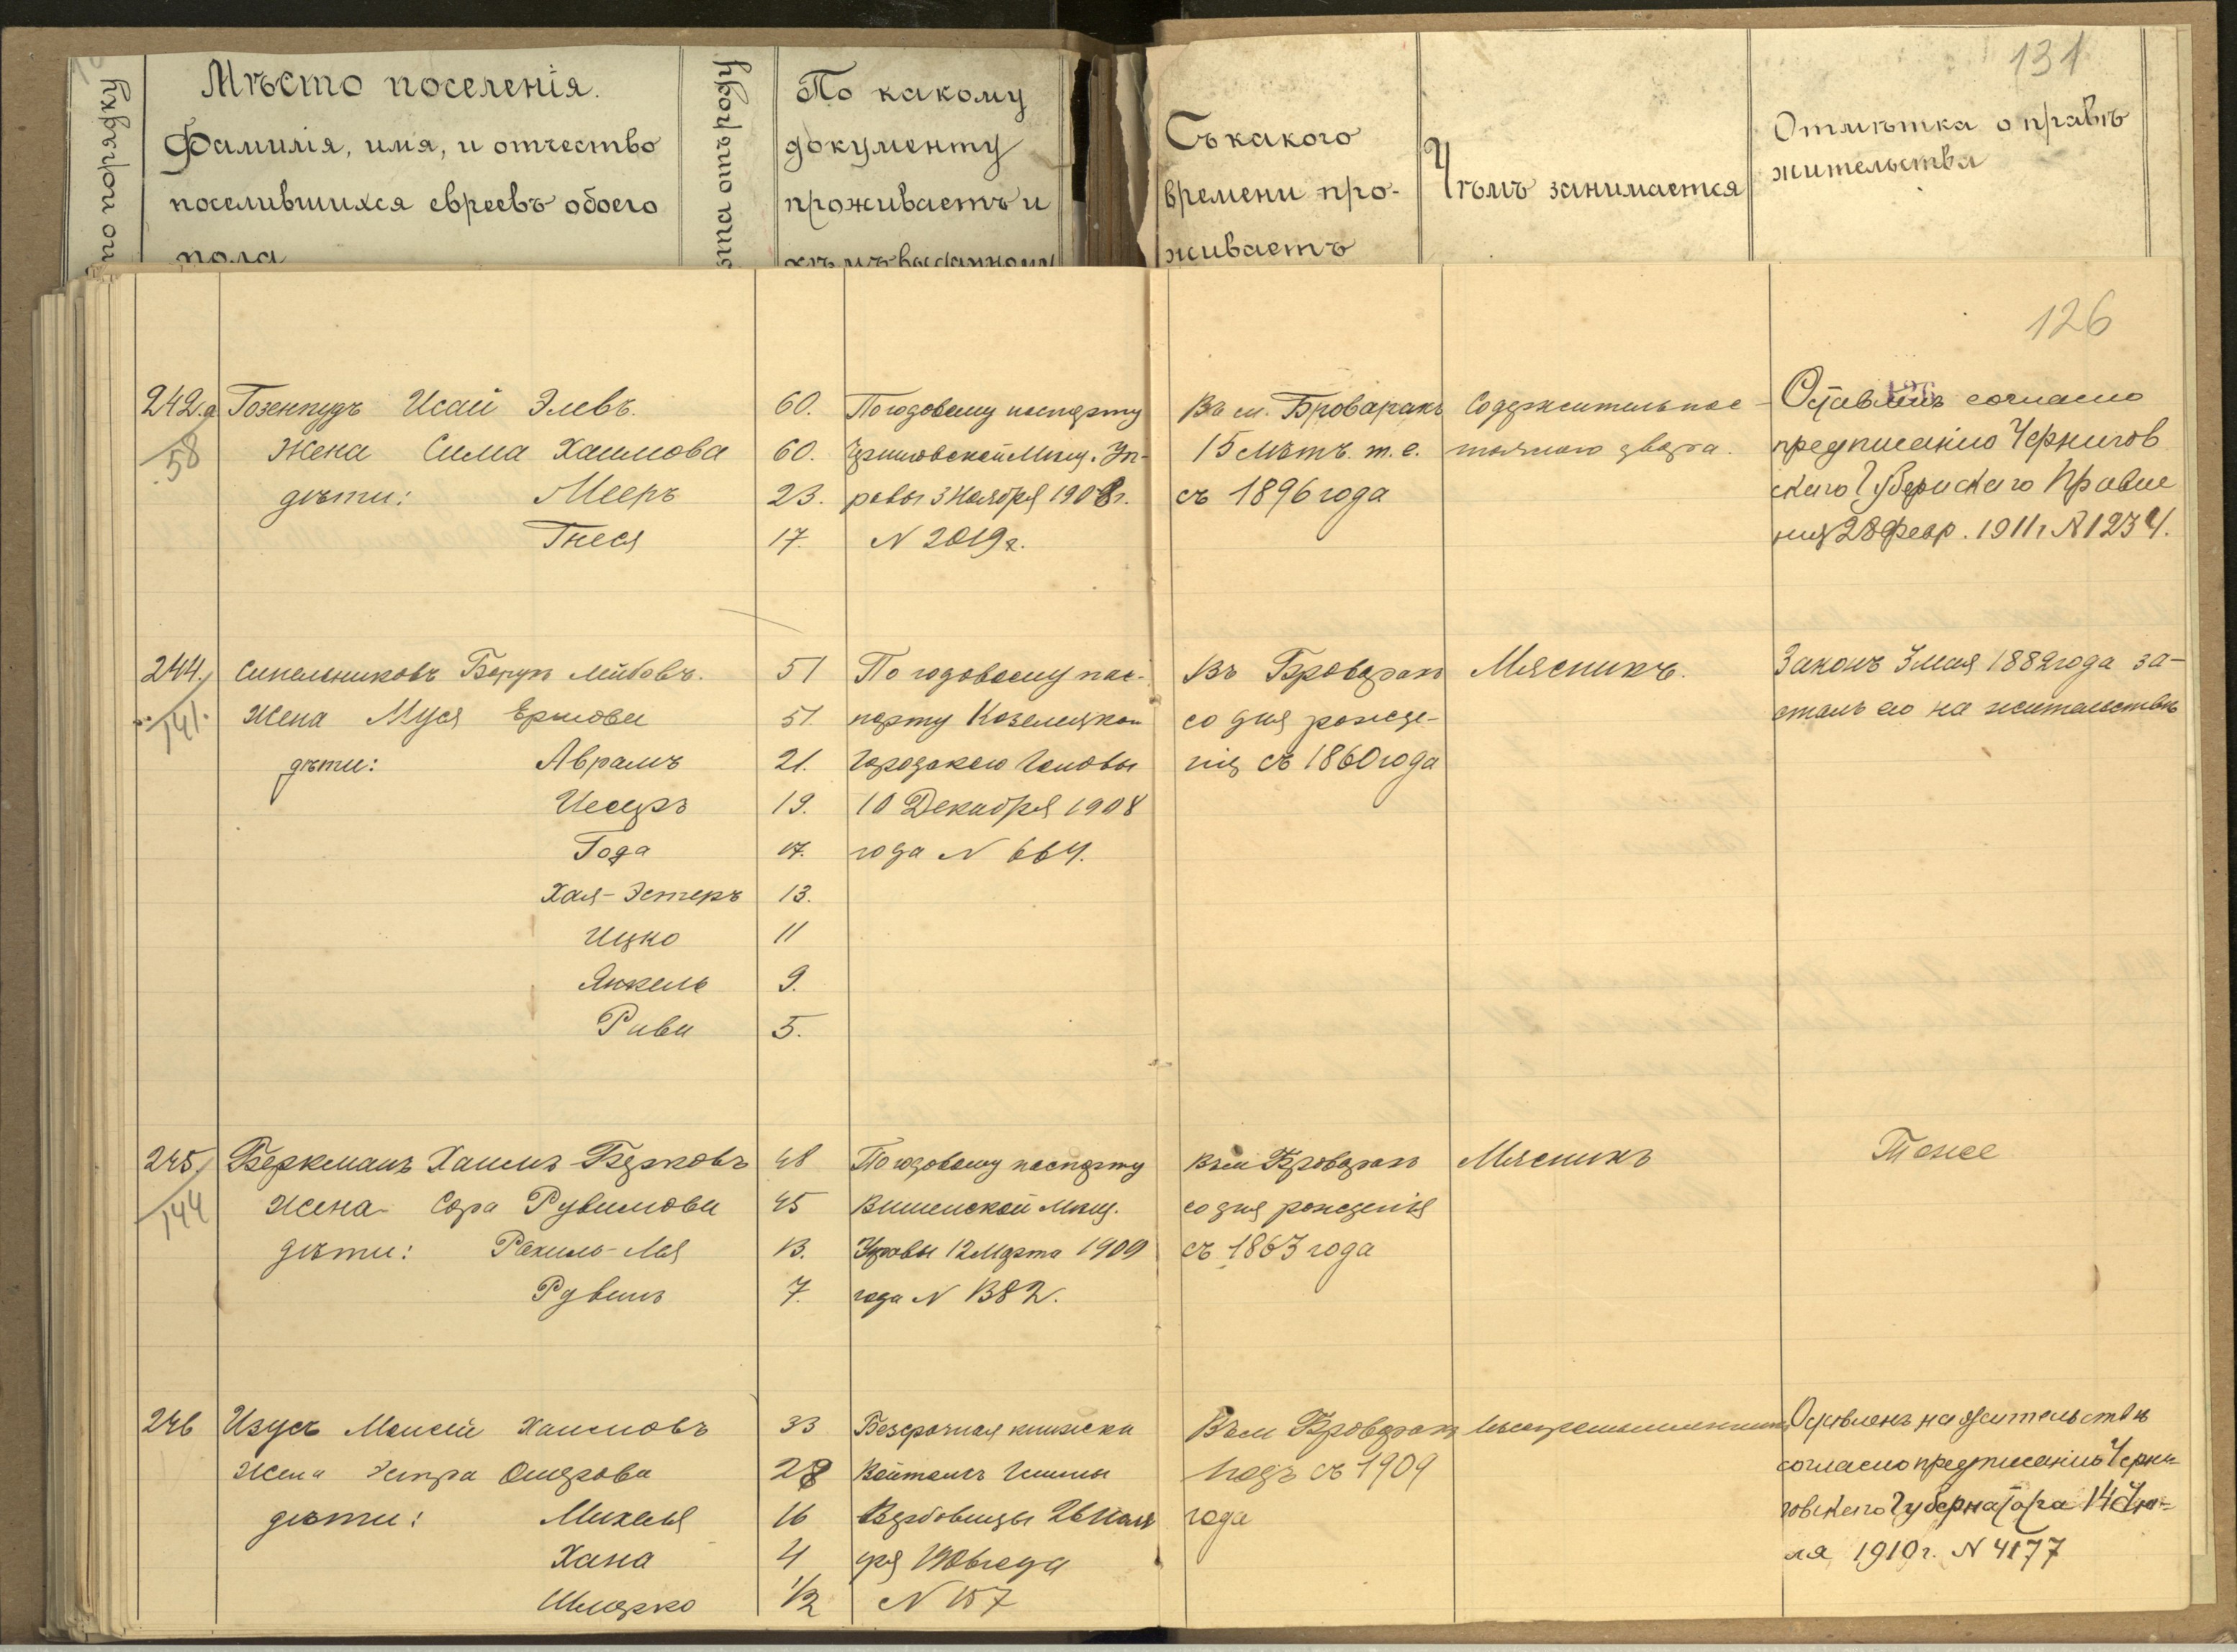 131
по порядку
Мѣсто поселенія.
Фамилія, имя, и отчество
поселившихся евреевъ обоего
пола
ѣта отъ роду
По какому
документу
проживаетъ и
кѣмъ выданному
Съ какого
времени про-
живаетъ
Чѣмъ занимается
Отмѣтка о правѣ
жительства
126
242.а Гозенпудъ Исай Элевъ. 60. По годовому паспорту Въ м. Броварахъ Содержитель пос- Оставленъ согласно
58 Жена Сима Хаимова 60. Мѣщ. Уп- 15 лѣтъ т. е. тоялаго двора. предписанію Чернигов
дѣти: Мееръ 23. равы 3 Ноября 1908 г. съ 1896 года скаго Губернскаго Правле
Гнеся 17. N 2019. нія 28 февр. 1911 г. N 1234.
244. Синельниковъ Борухъ Лейбовъ. 51 По годовому пас- Въ Броварахъ Мясникъ. Законъ 3 мая 1882 года за-
141. Жена Муся 51. порту Козелецкой со дня рожде- сталъ его на жительствѣ
дѣти: Аврамъ 21. Городского Головы нія съ 1860 года
19. 10 Декабря 1908
Года 17. года N 664.
Хая-Эстеръ 13.
Ицко 11
Янкель 9.
Рива 5.
245. Беркманъ Хаимъ Берковъ 48 По годовому паспорту Въ м Броварахъ Мясникъ Тоже
144 Жена Сора Рувимова 45 Мѣщ. со дня рожденія
дѣти: Рахиль-Лея 13. Управы 12 Марта 1909 съ 1863 года
Рувимъ 7. года N 1382.
246 Изусъ Моисей Хаимовъ 33 Безсрочная книжка Въ м Броварахъ Оставленъ на жительствѣ
Жена Эстра Ошерова 28 годъ съ 1909 согласно предписанію Черни-
дѣти: Михля 16 года говскаго Губернатора 14 Ію-
Хана 4 ля 1910 г. N 4177
Шмерко 1/2 N 157